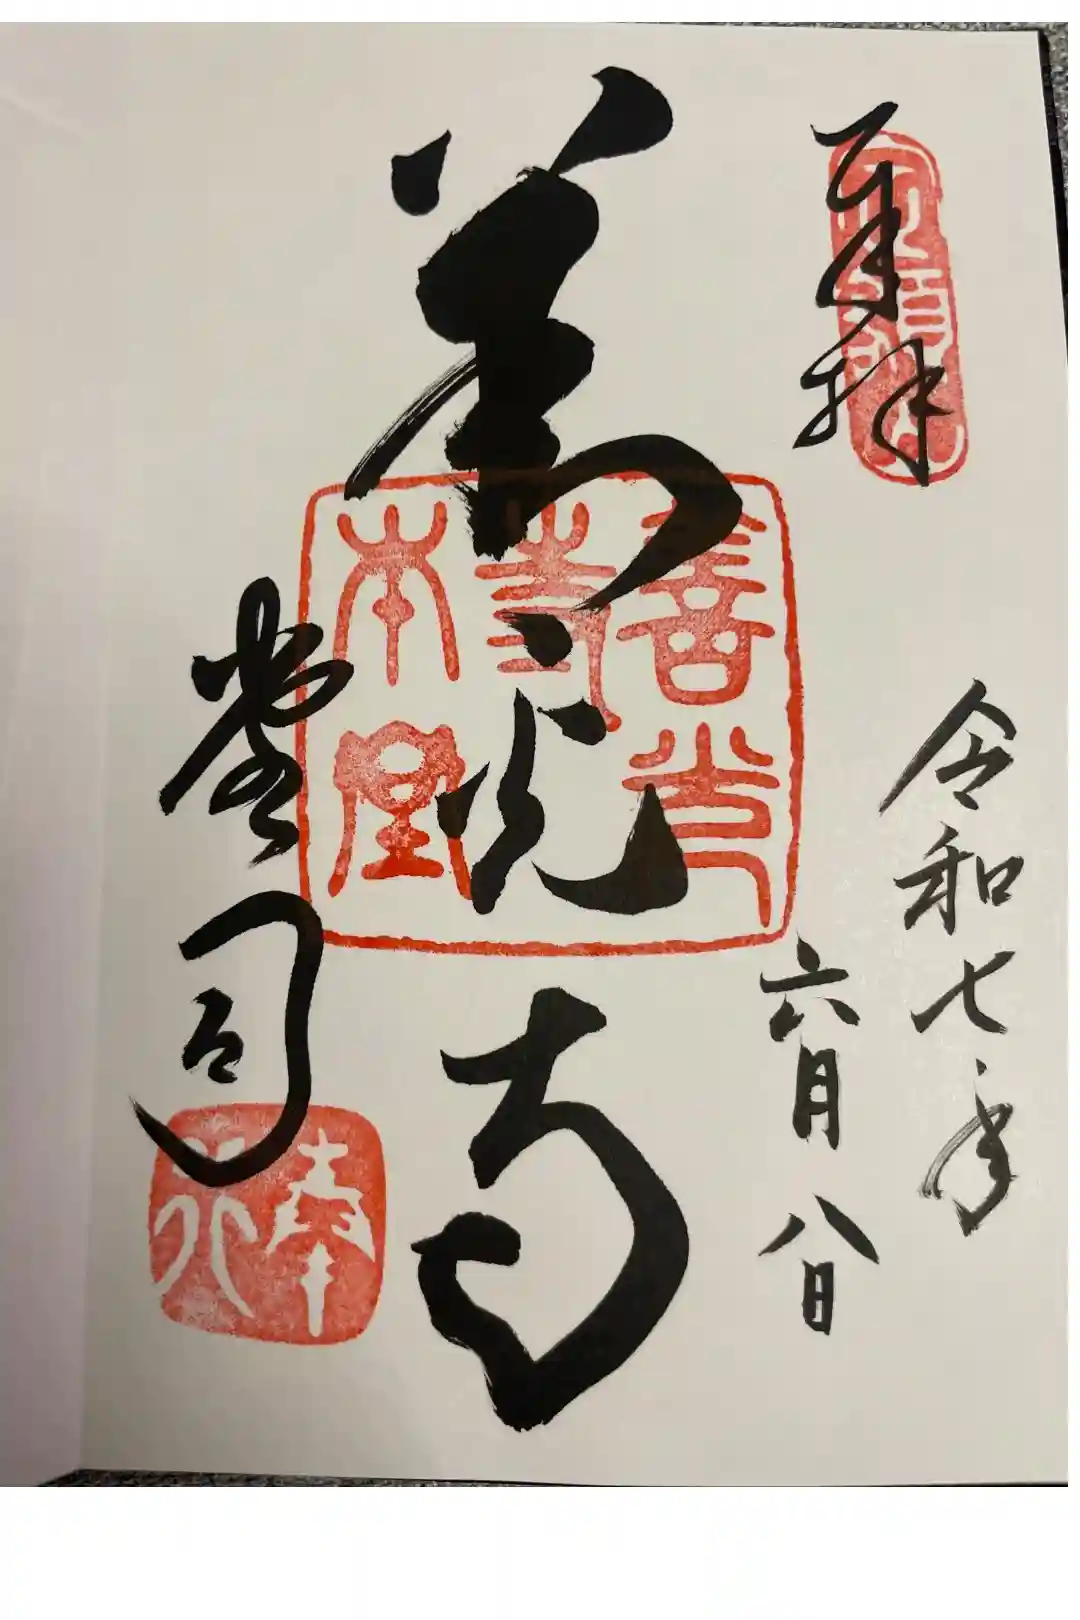 奉拝
定額山
令和七年
六月八日
善光寺
善光
寺
本堂
堂司